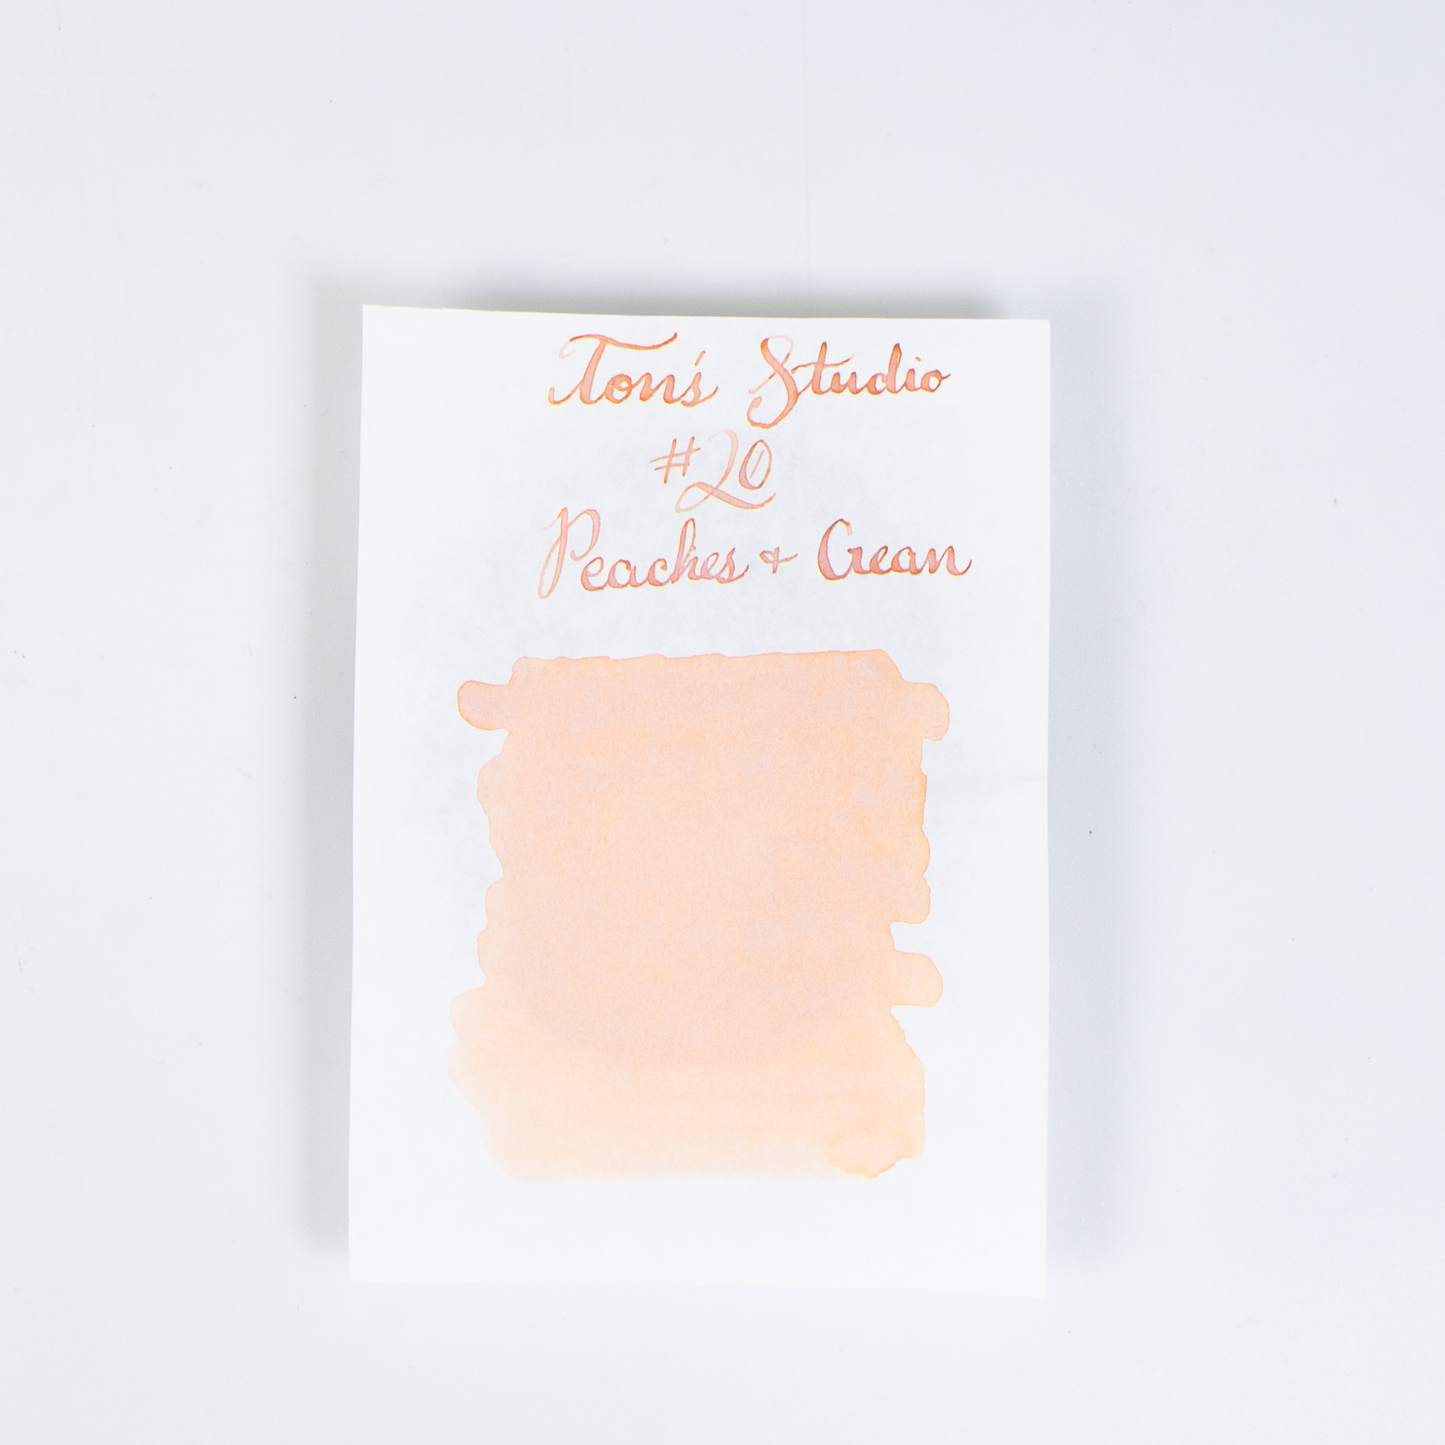 Ton's Studio
#20
Peaches + Crean